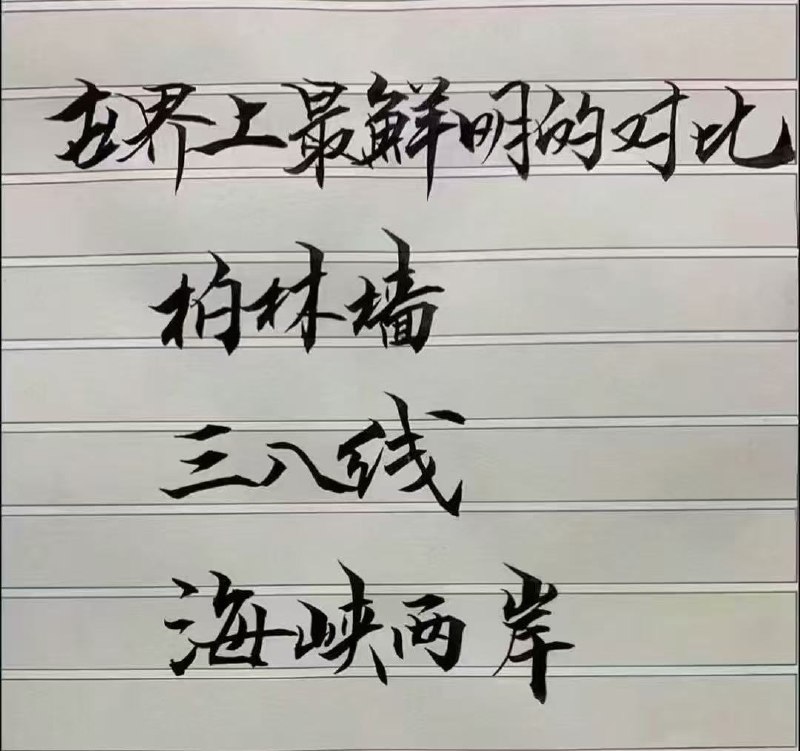 世界上最鲜明的对比
柏林墙
三八线
海峡两岸